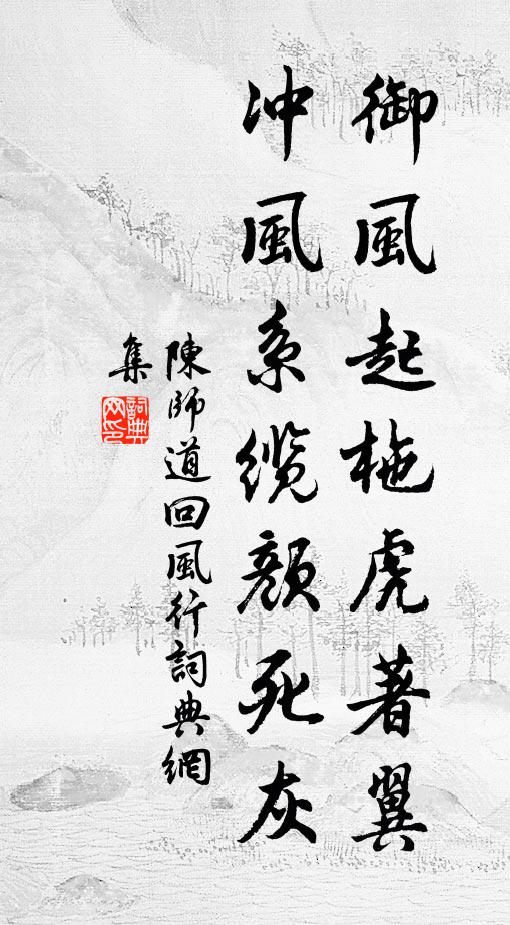 御風起柂虎著翼
冲風系纜顏死灰
陳師道回風行詞典網
集
詞典
网印